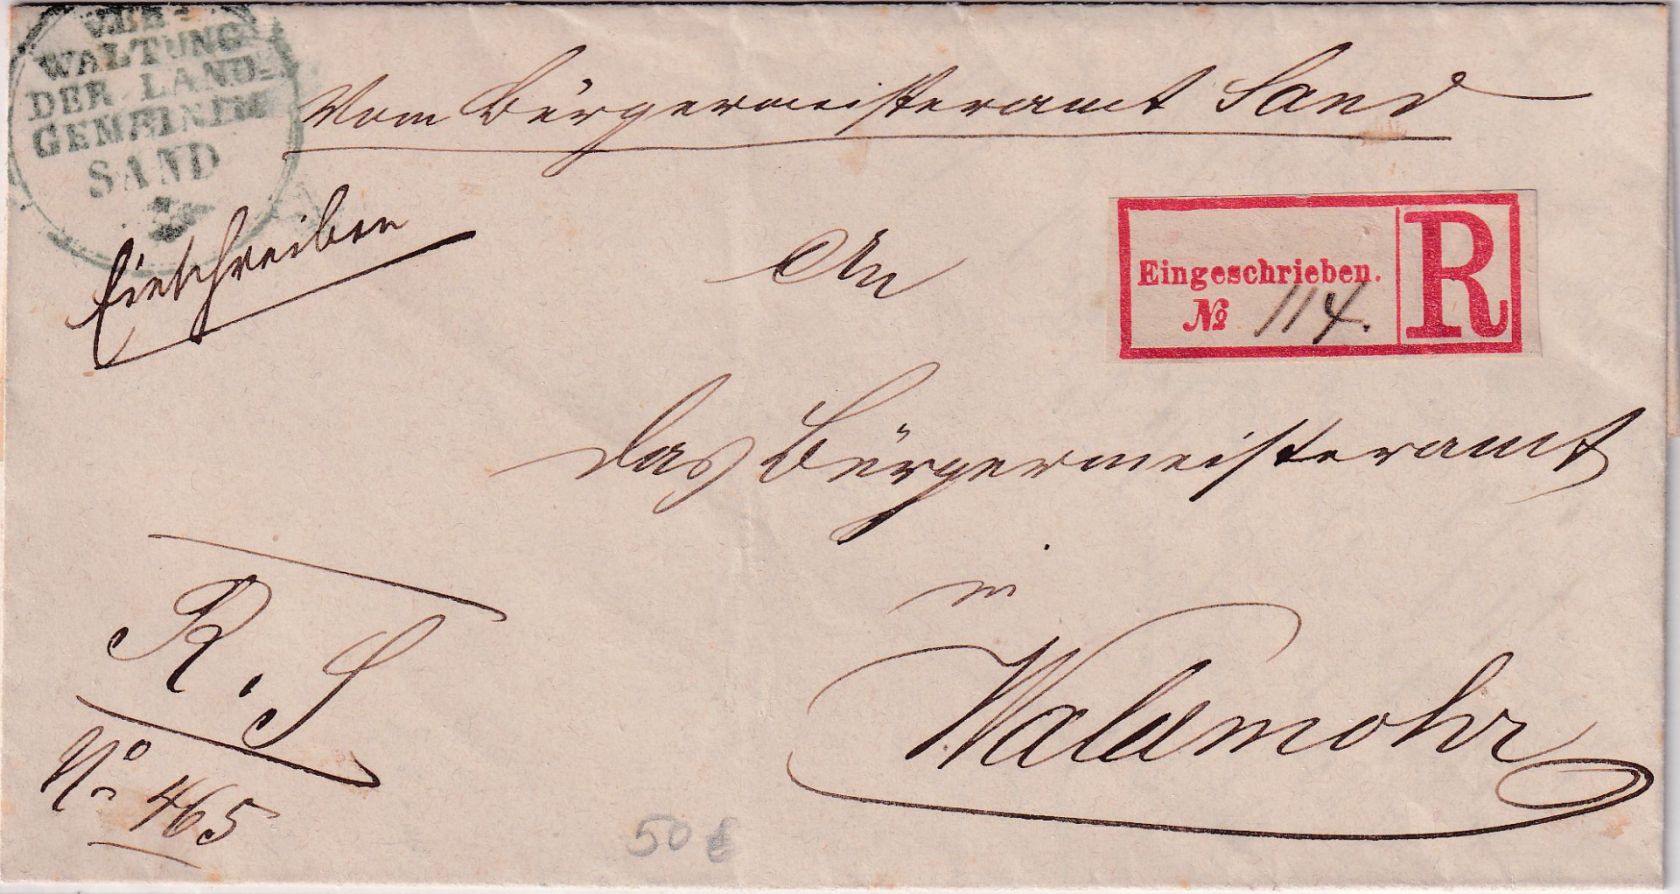 VER-
WALTUNG
DER LAND-
GEMEINDE
SAND
Vom Bürgermeisteramt Sand
Einschreiben
An
Eingeschrieben.
№ 114.
R
das Bürgermeisteramt
in
Waldmohr
R. S
No 465
50 €